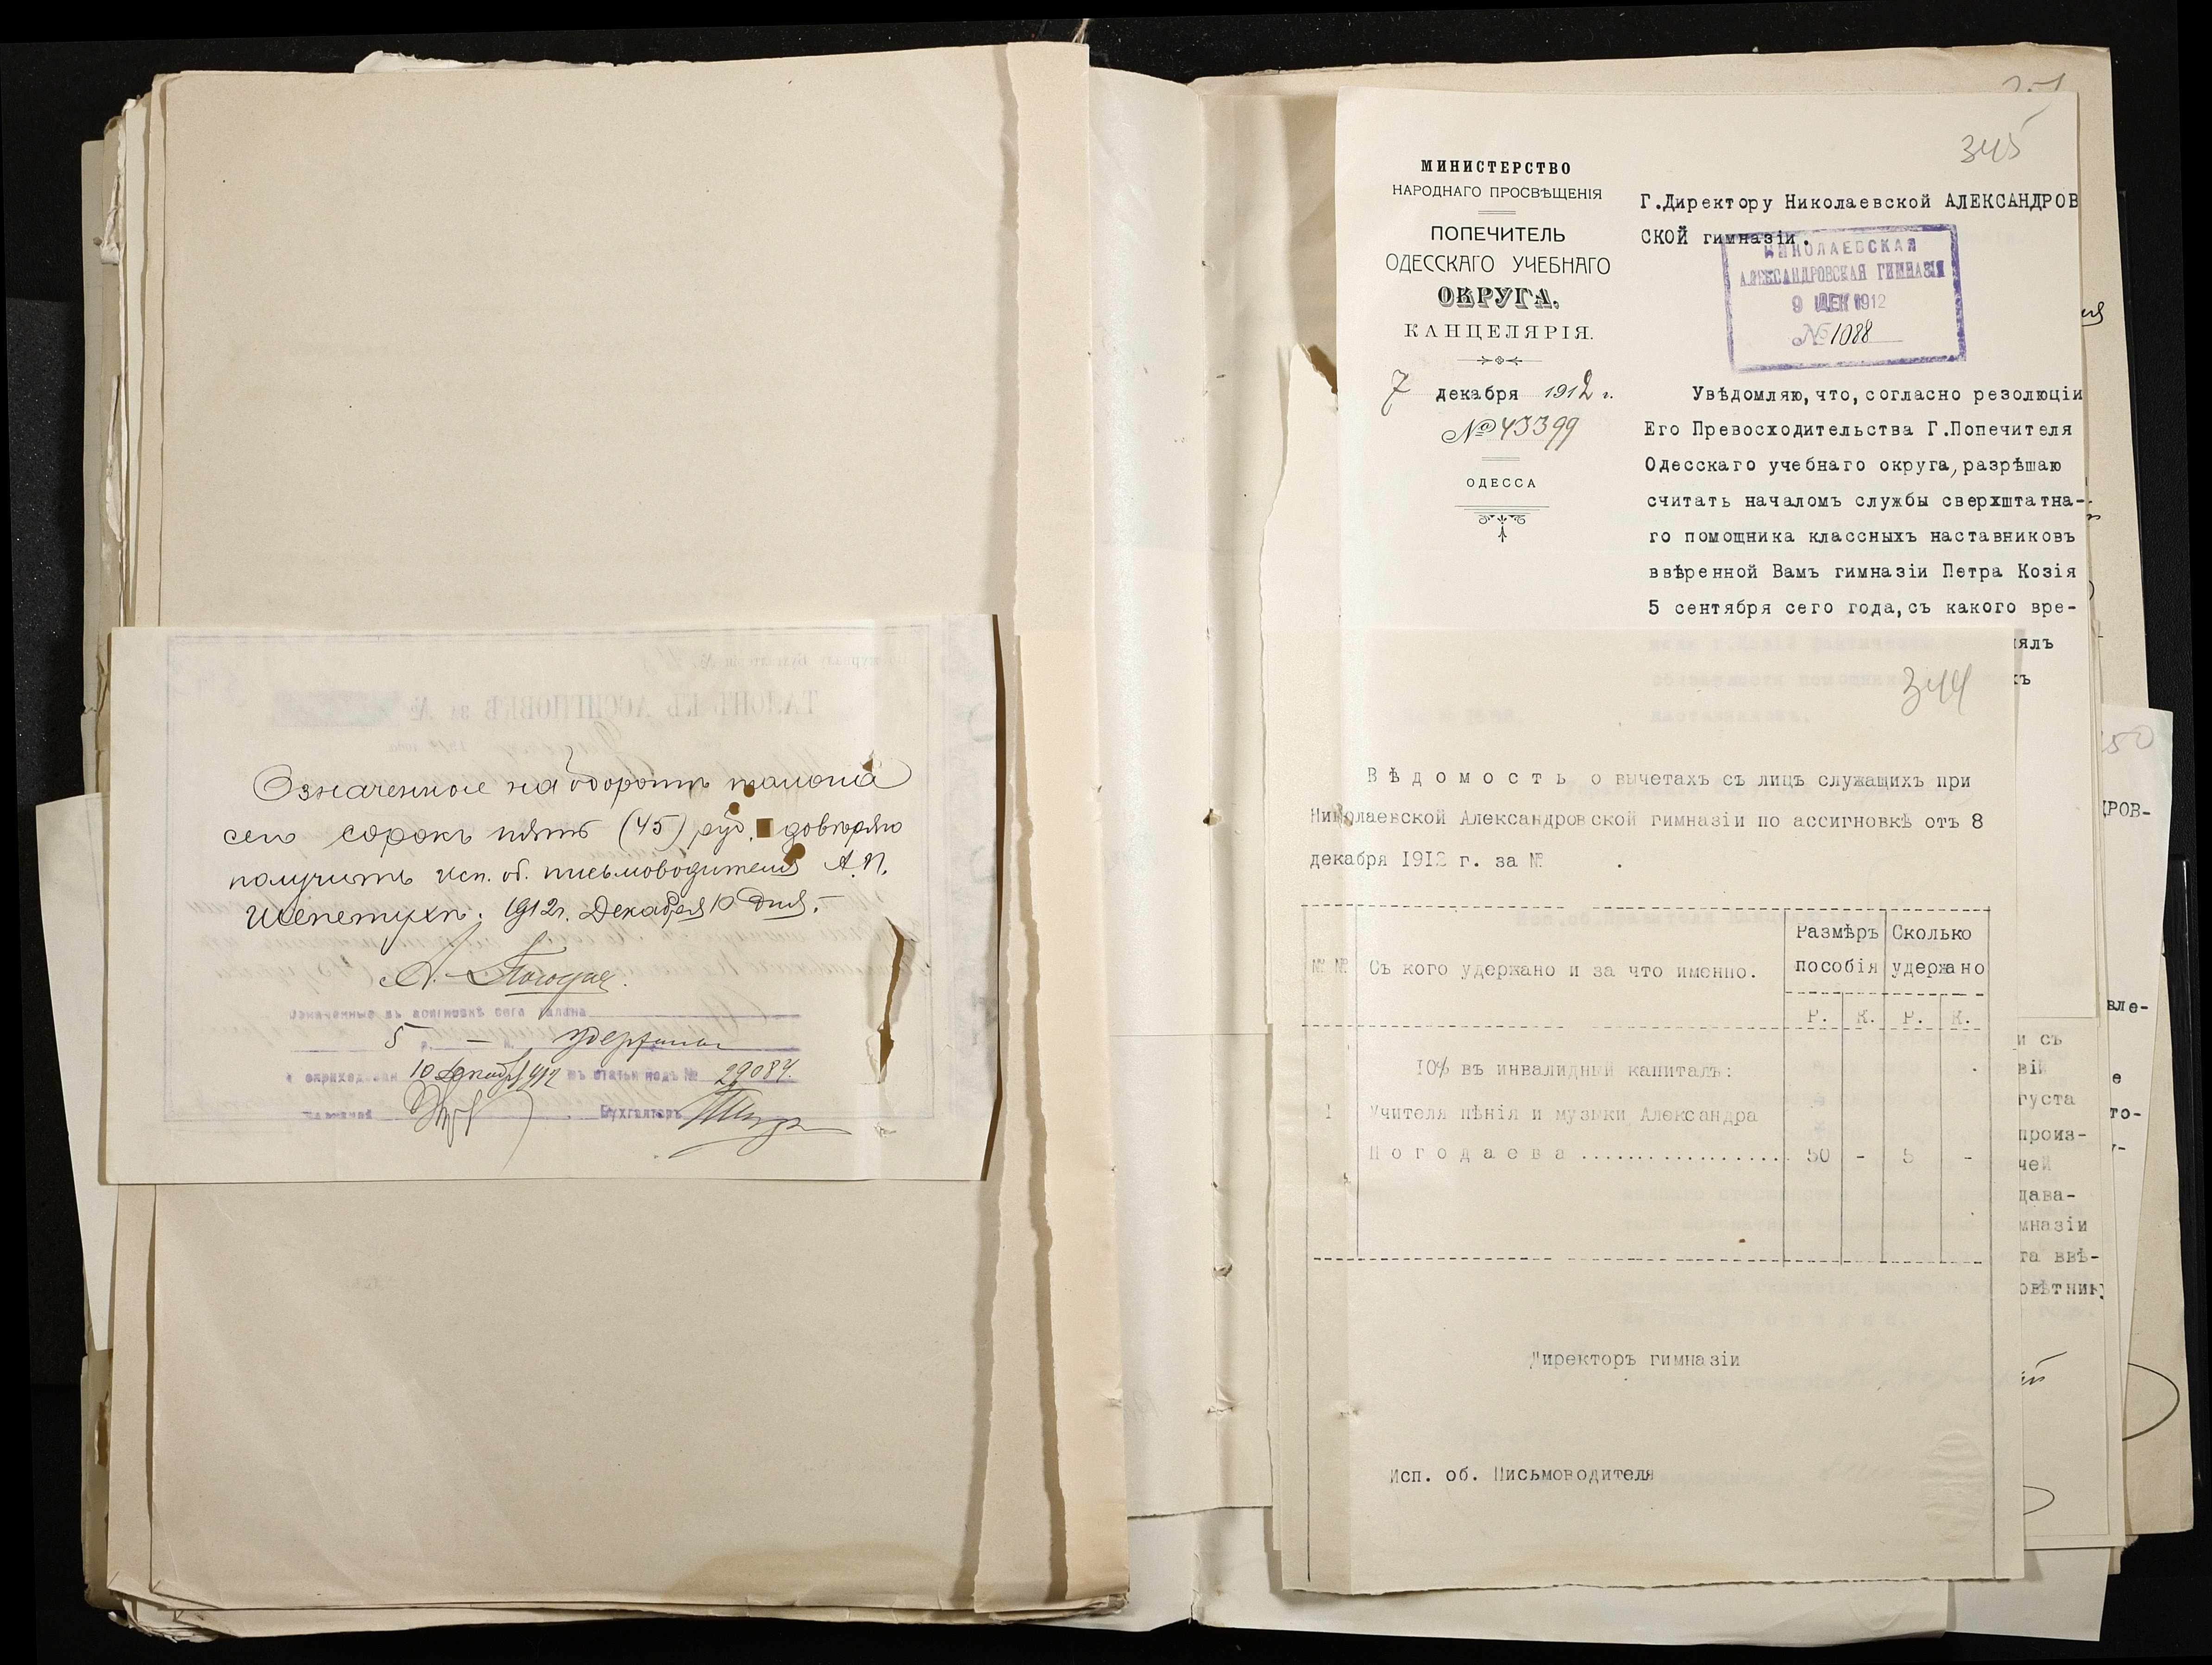 Означенные на обороте талона
сего сорокъ пять (45) руб. довѣряю
получить исп. об. письмоводителя А.П.
Шепетухѣ. 1912 г. Декабря 10 дня.
А. Погодаев
Означенные въ асигновкѣ сего талона
5 р. — к. удержаны
и оприходован 10 Декабря 1912 въ статьи подъ № 29084.
Бухгалтеръ
ТАЛОНЪ КЪ АССИГНОВКѢ за №
345
МИНИСТЕРСТВО
НАРОДНАГО ПРОСВѢЩЕНІЯ
ПОПЕЧИТЕЛЬ
ОДЕССКАГО УЧЕБНАГО
ОКРУГА.
КАНЦЕЛЯРІЯ.
7 декабря 1912 г.
№ 43399
ОДЕССА
Г.Директору Николаевской АЛЕКСАНДРОВ
СКОЙ гимназіи.
НИКОЛАЕВСКАЯ
АЛЕКСАНДРОВСКАЯ ГИМНАЗІЯ
9 ДЕК 1912
№ 1088
Увѣдомляю,что,согласно резолюціи
Его Превосходительства Г.Попечителя
Одесскаго учебнаго округа,разрѣшаю
считать началомъ службы сверхштатна-
го помощника классныхъ наставниковъ
ввѣренной Вамъ гимназіи Петра Козія
5 сентября сего года,съ какого вре-
ялъ
хъ
344
Вѣдомость о вычетахъ съ лицъ служащихъ при
Николаевской Александровской гимназіи по ассигновкѣ отъ 8
декабря 1912 г. за № .
№ № Съ кого удержано и за что именно. Размѣръ пособія Сколько удержано
Р. К. Р. К.
10% въ инвалидный капиталъ:
1 Учителя пѣнія и музыки Александра
Погодаева ................. 50 - 5 -
Директоръ гимназіи
Исп. об. Письмоводителя
50
ДРОВ-
вле-
и съ
вій
е
густа
то-
произ-
чей
дава-
мназіи
та ввѣ-
овѣтнику